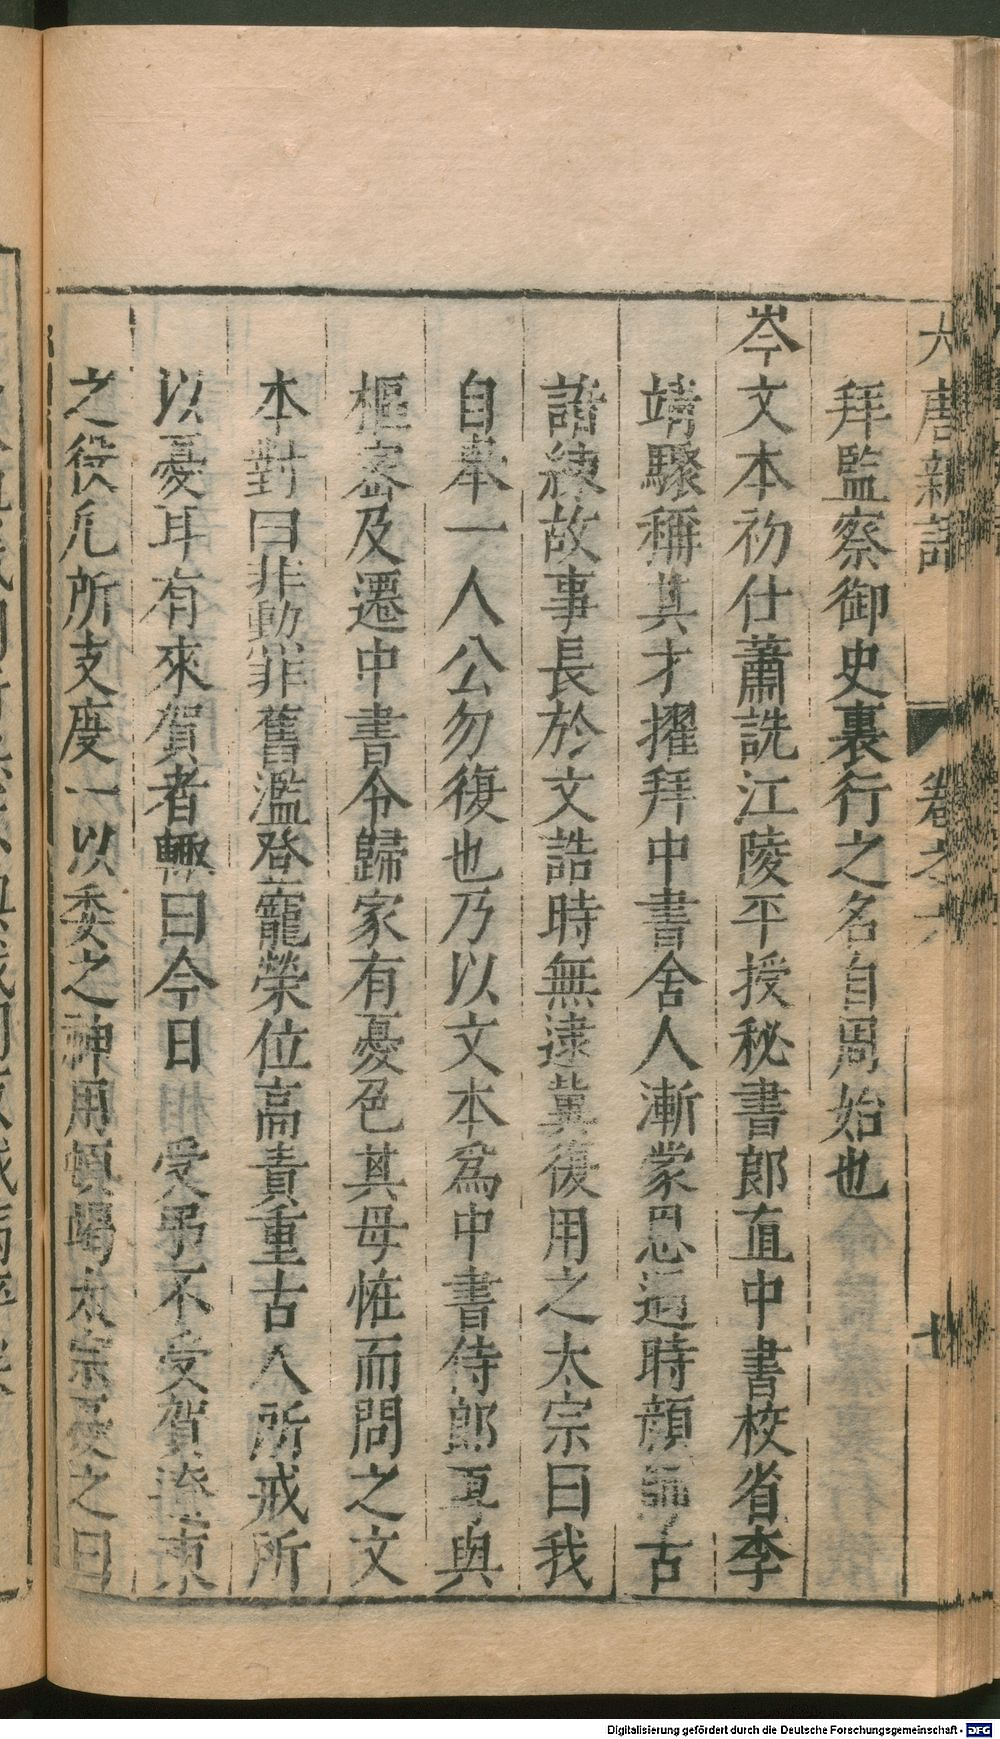 大唐新語 卷之六 七
拜監察御史裏行之名自周始也
岑文本初仕蕭詵江陵平授秘書郎直中書校省李
靖驟稱其才擢拜中書舍人漸蒙恩遇時顏師古
諳練故事長於文誥時無逮冀復用之太宗曰我
自舉一人公勿復也乃以文本爲中書侍郎專與
樞密及遷中書令歸家有憂色其母恠而問之文
本對曰非勲非舊濫登寵榮位高責重古人所戒所
以憂耳有來賀者輙曰今日受弔不受賀遼東
之役凢所支度一以委之神用頓竭太宗憂之曰
Digitalisierung gefördert durch die Deutsche Forschungsgemeinschaft - DFG